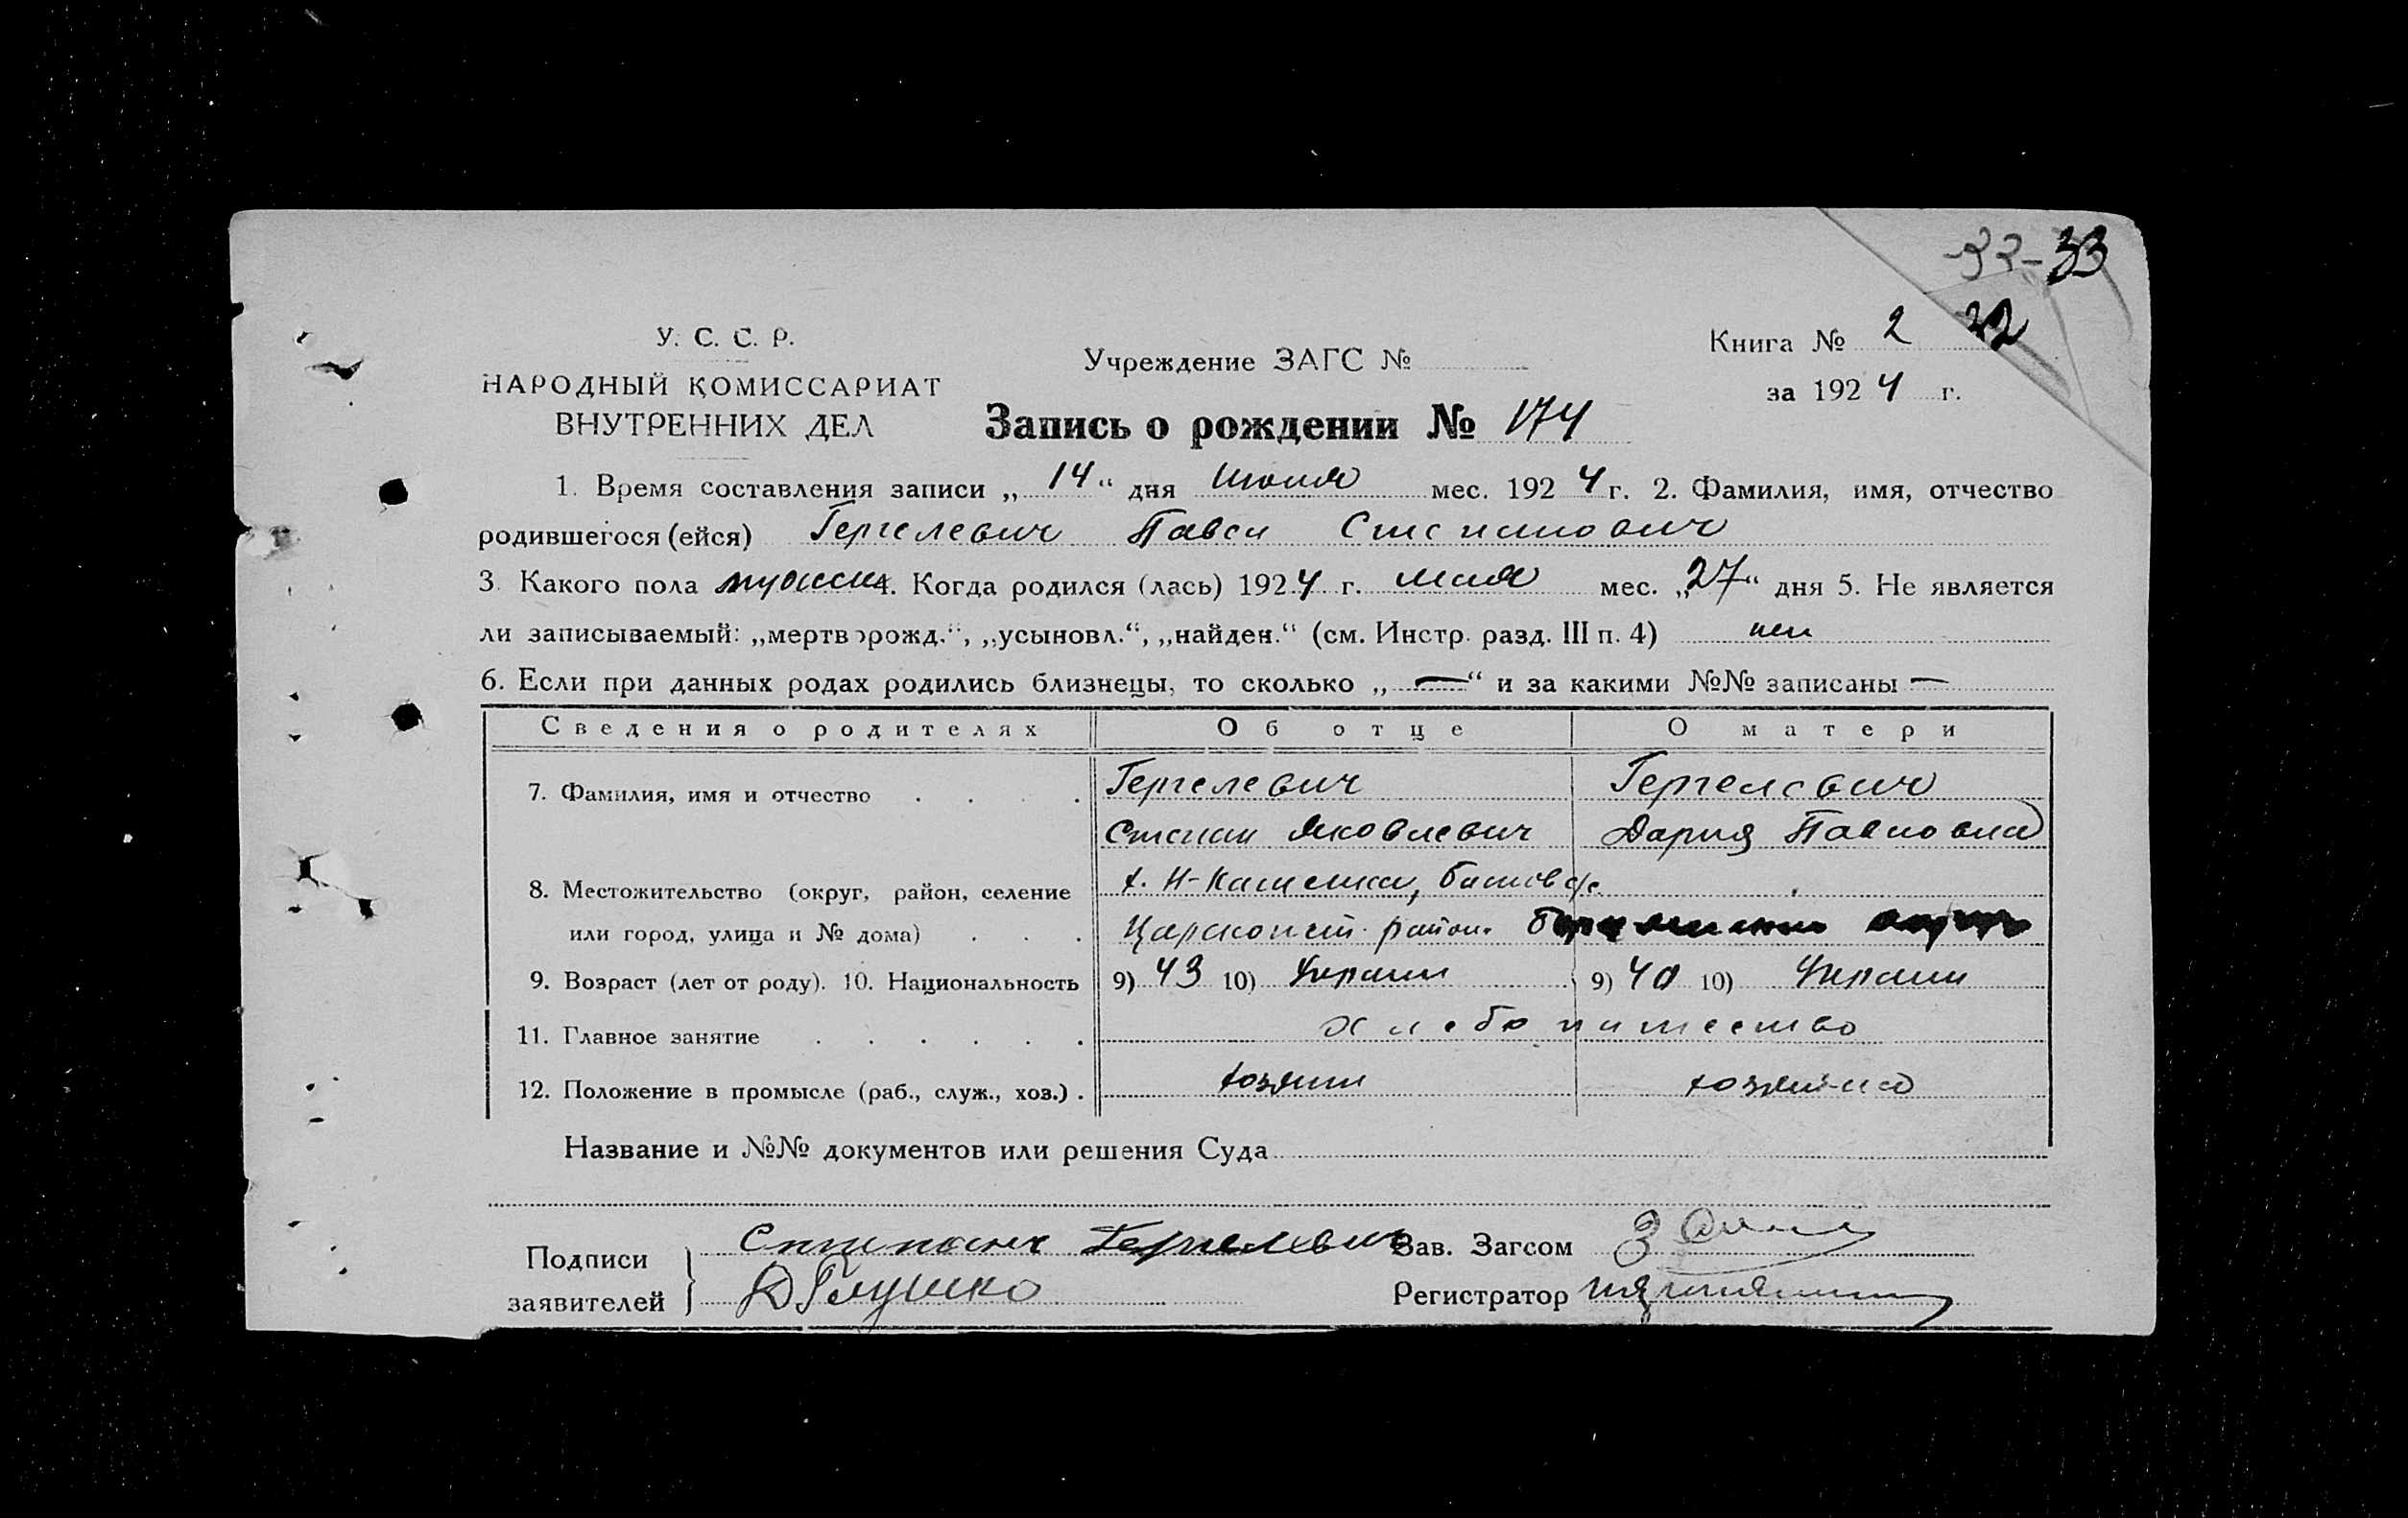 32-33
У. С. С. Р.
Учреждение ЗАГС №
Книга № 2 32
НАРОДНЫЙ КОМИССАРИАТ
ВНУТРЕННИХ ДЕЛ
за 1924 г.
Запись о рождении № 174
1. Время составления записи „14“ дня Июля мес. 1924 г. 2. Фамилия, имя, отчество
родившегося (ейся) Гергелевич Павел Степанович
3. Какого пола мужск 4. Когда родился (лась) 1924 г. мая мес. „27“ дня 5. Не является
ли записываемый: „мертворожд.“, „усыновл.“, „найден.“ (см. Инстр. разд. III п. 4) нет
6. Если при данных родах родились близнецы, то сколько „—“ и за какими №№ записаны —
Сведения о родителях Об отце О матери
7. Фамилия, имя и отчество Гергелевич Гергелевич
Степан Яковлевич Дария Павловна
8. Местожительство (округ, район, селение х. Н-
или город, улица и № дома) Царсконст. район.
9. Возраст (лет от роду). 10. Национальность 9) 43 10) Украин 9) 40 10) Украин
11. Главное занятие хлебопашество
12. Положение в промысле (раб., служ., хоз.) хозяин хозяйка
Название и №№ документов или решения Суда
Подписи заявителей Гергелевич Зав. Загсом
Д Глушко Регистратор